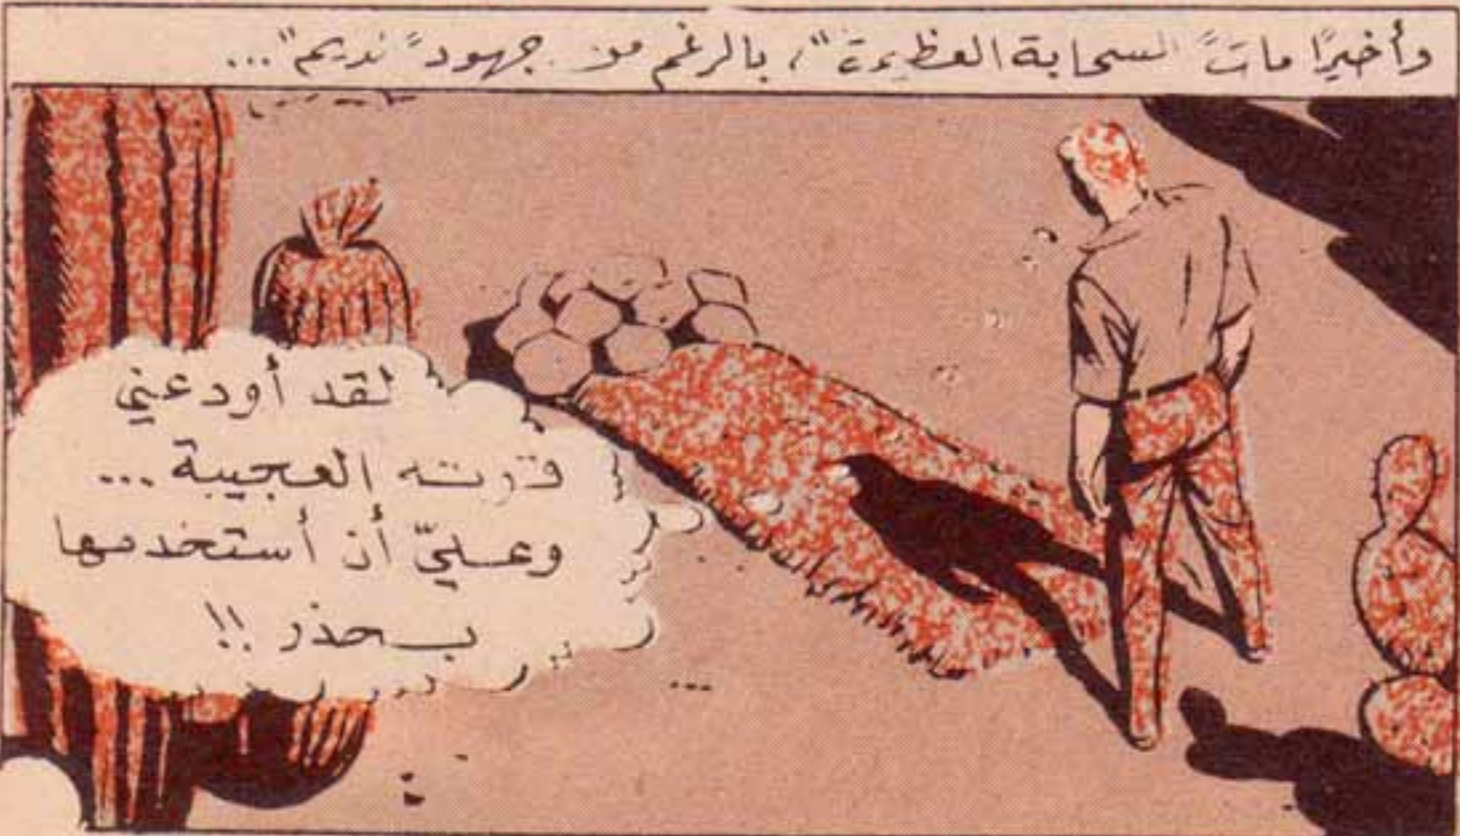 وأخيرًا مات "السحابة العظيمة"، بالرغم من جهود "نديم"...
لقد أودعني
قدرته العجيبة...
وعليّ أن أستخدمها
بحذر!!